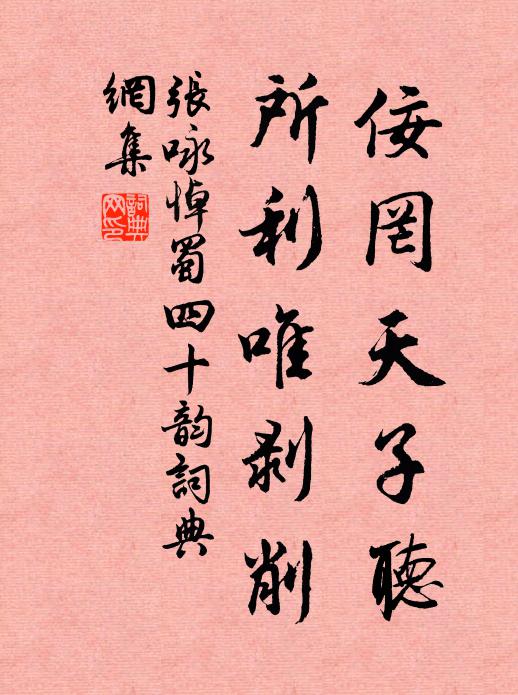 佞罔天子聴
所利唯剥削
張咏悼蜀四十韵詞典
網集
詞典网印